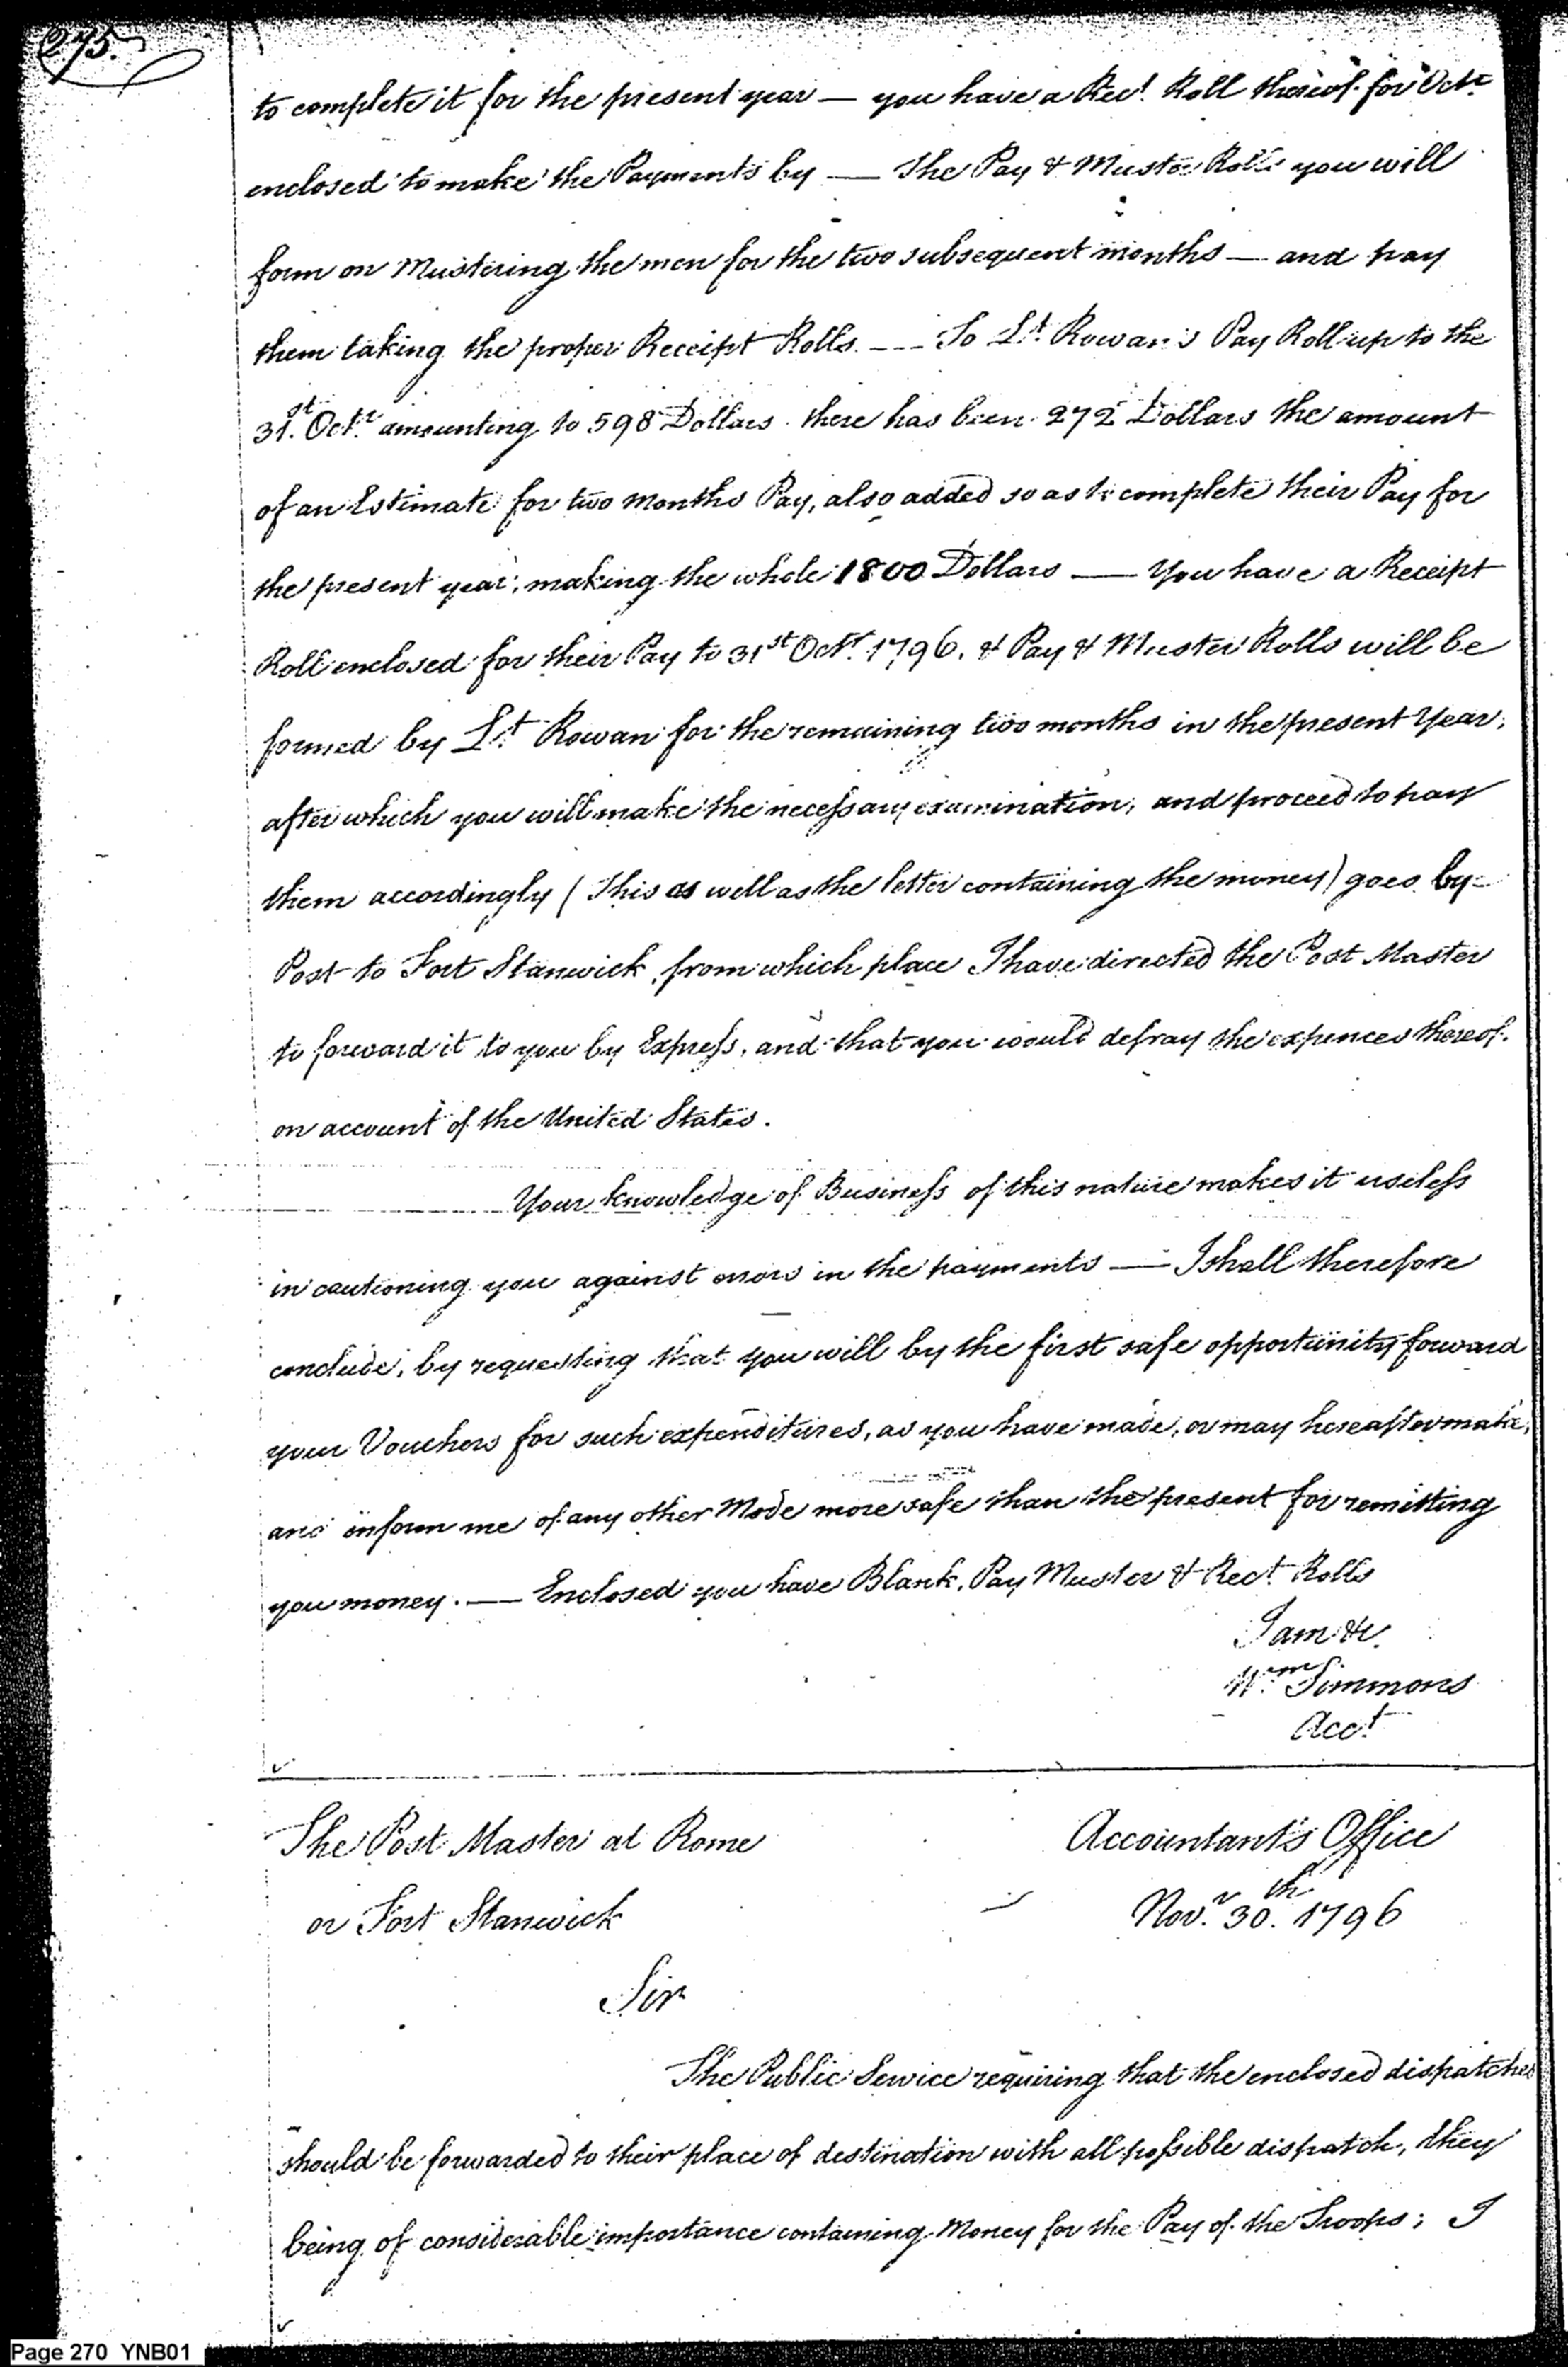 275.
to complete it for the present year — you have a Rect. Roll thereof for Octr.
enclosed to make the Payments by — The Pay & Muster Rolls you will
form on Mustering the men for the two subsequent months — and pay
them taking the proper Receipt Rolls. —— To Lt. Rowan's Pay Roll up to the
31st. Octr. amounting to 598 Dollars there has been 272 Dollars the amount
of an Estimate for two months Pay, also added so as to complete their Pay for
the present year, making the whole 1800 Dollars — You have a Receipt
Roll enclosed for their Pay to 31st Octr. 1796. & Pay & Muster Rolls will be
formed by Lt. Rowan for the remaining two months in the present Year,
after which you will make the necessary examination, and proceed to pay
them accordingly (This as well as the letter containing the money) goes by
Post to Fort Stanwick, from which place I have directed the Post Master
to forward it to you by Express, and that you would defray the expences thereof.
on account of the United States.
Your knowledge of Business of this nature makes it useless
in cautioning you against errors in the payments — I shall therefore
conclude, by requesting that you will by the first safe opportunity forward
your Vouchers for such expenditures, as you have made, or may hereafter make,
and inform me of any other Mode more safe than the present for remitting
you money. —— Enclosed you have Blank, Pay Muster & Rect. Rolls
I am &c.
Wm. Simmons
Acct.
The Post Master at Rome
or Fort Stanwick
Accountant's Office
Novr. 30th. 1796
Sir
The Public Service requiring that the enclosed dispatches
should be forwarded to their place of destination with all possible dispatch, they
being of considerable importance containing Money for the Pay of the Troops; I
Page 270 YNB01